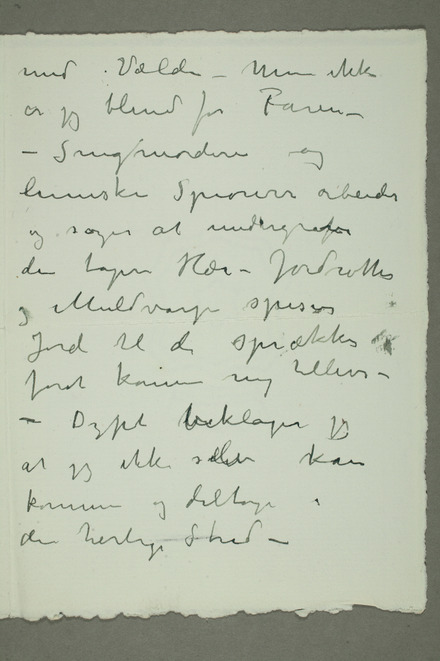 med Vælde – Men ikke
er jeg blind for Faren –
– Snigmordere og
lumske Spioner arbeider
og søger at undergrave
den tapre Hær – Jordrotter
og Muldvarpe spiser
Jord til de sprækker
forat komme mig tillivs –
– Dypt beklager jeg
at jeg ikke selv kan
komme og deltage i
den herlige Strid –